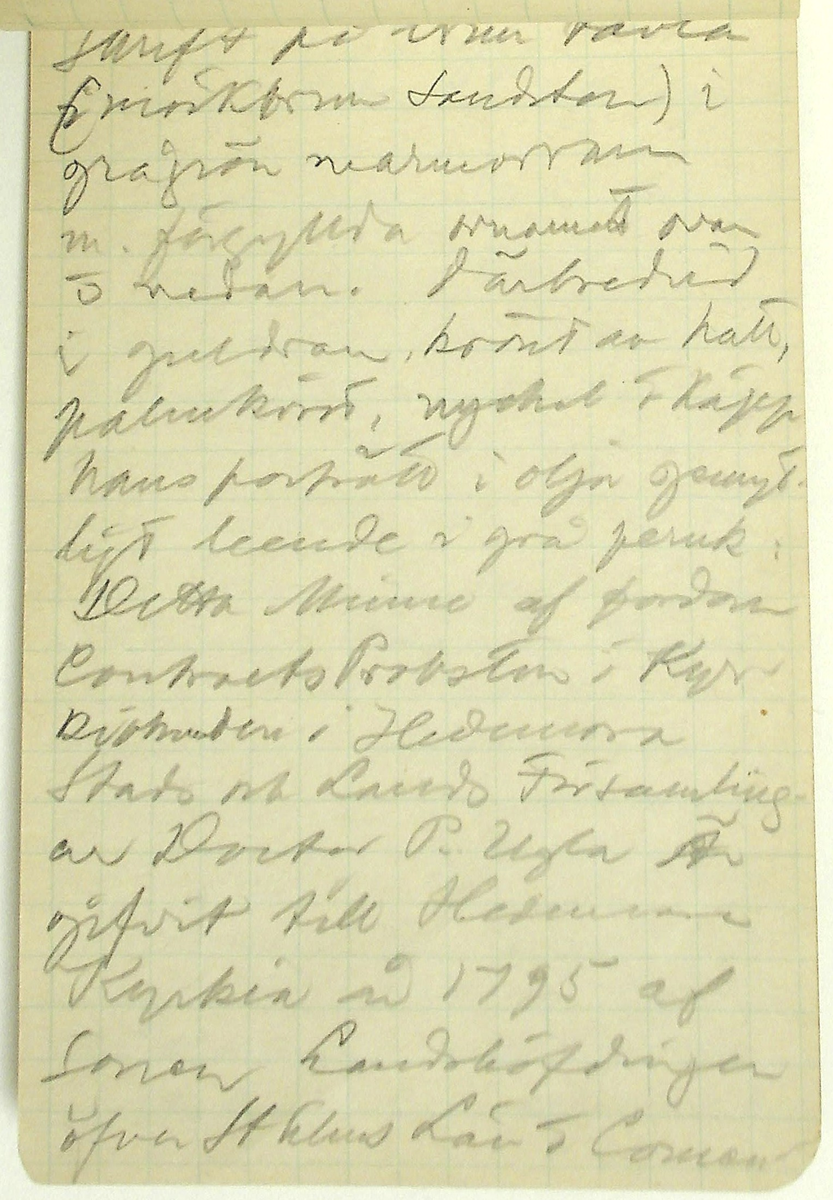 skrift på brun tavla
(mörkbrun Sandsten) i
grågrön marmorram
m. förgyllda ornamt ovan
o nedan. Därbredvid
i guldram, krönt av hatt,
palmkvist, nyckel o Käpp
hans porträtt i olja gemyt-
ligt leende i grå peruk:
Detta Minne af fordom
Contracts Probsten i Kyr
Kioherden i Hedemora
Stads och Lands Församling-
ar Doctor P. Ugla Är
gifvit till Hedemora
Kyrkia åd 1795 af
Sonen Landshöfdingen
öfver St Elms Län o Coman